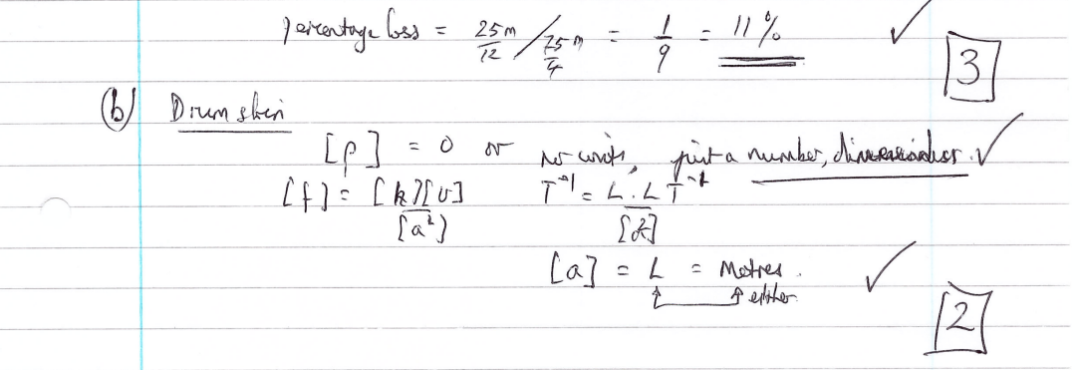 Percentage loss = 25m/12 / 75m/4 = 1/9 = 11% ✓ 3
(b) Drum skin
[p] = 0 or no units, just a number, dimensionless. ✓
[f] = [k][v]/[a²] T⁻¹ = L. L T⁻¹/[a²]
[a] = L = Metres. ✓
either 2